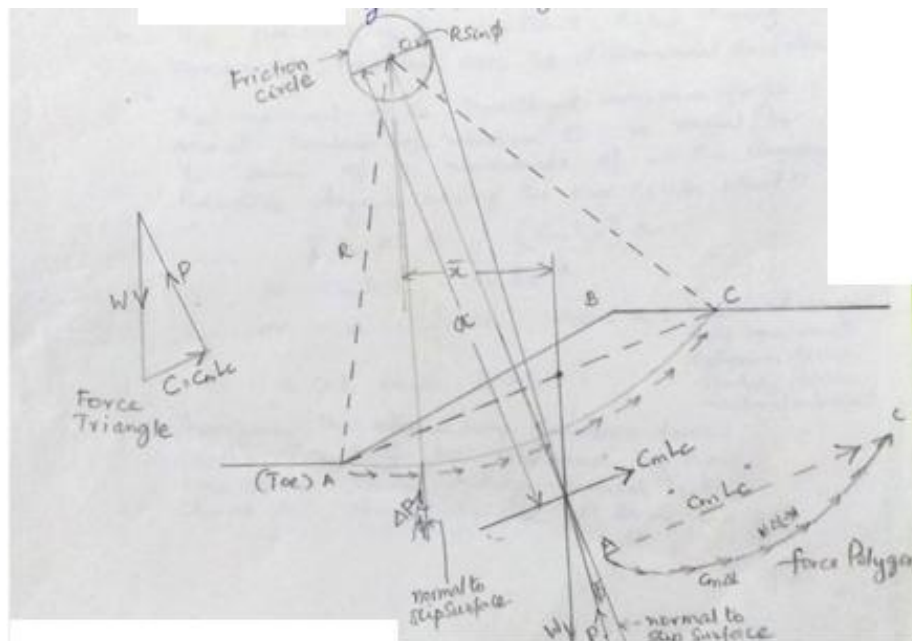 Friction
circle
R Sin φ
R
x̄
W
P
C = CmLc
Force
Triangle
B
C
a
(Toe) A
CmLc
ΔP
normal to
slip surface
A
CmLc
C
CmΔL
force Polygon
W
P
normal to
slip surface